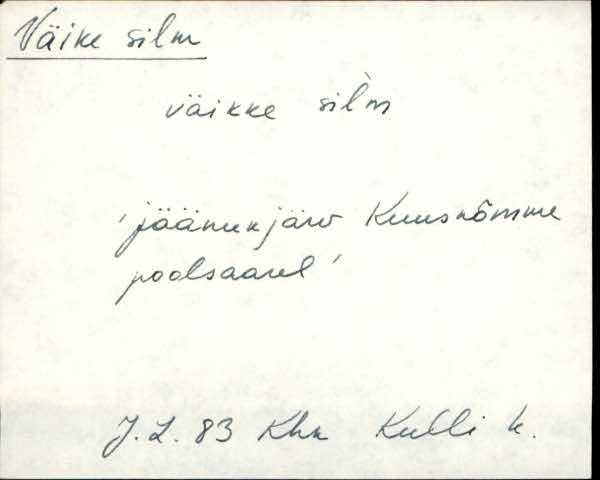 Väike silm
väikke sil̀m
'jäänukjärv Kuusnõmme
poolsaarel'
J.L. 83 Khk Kulli k.